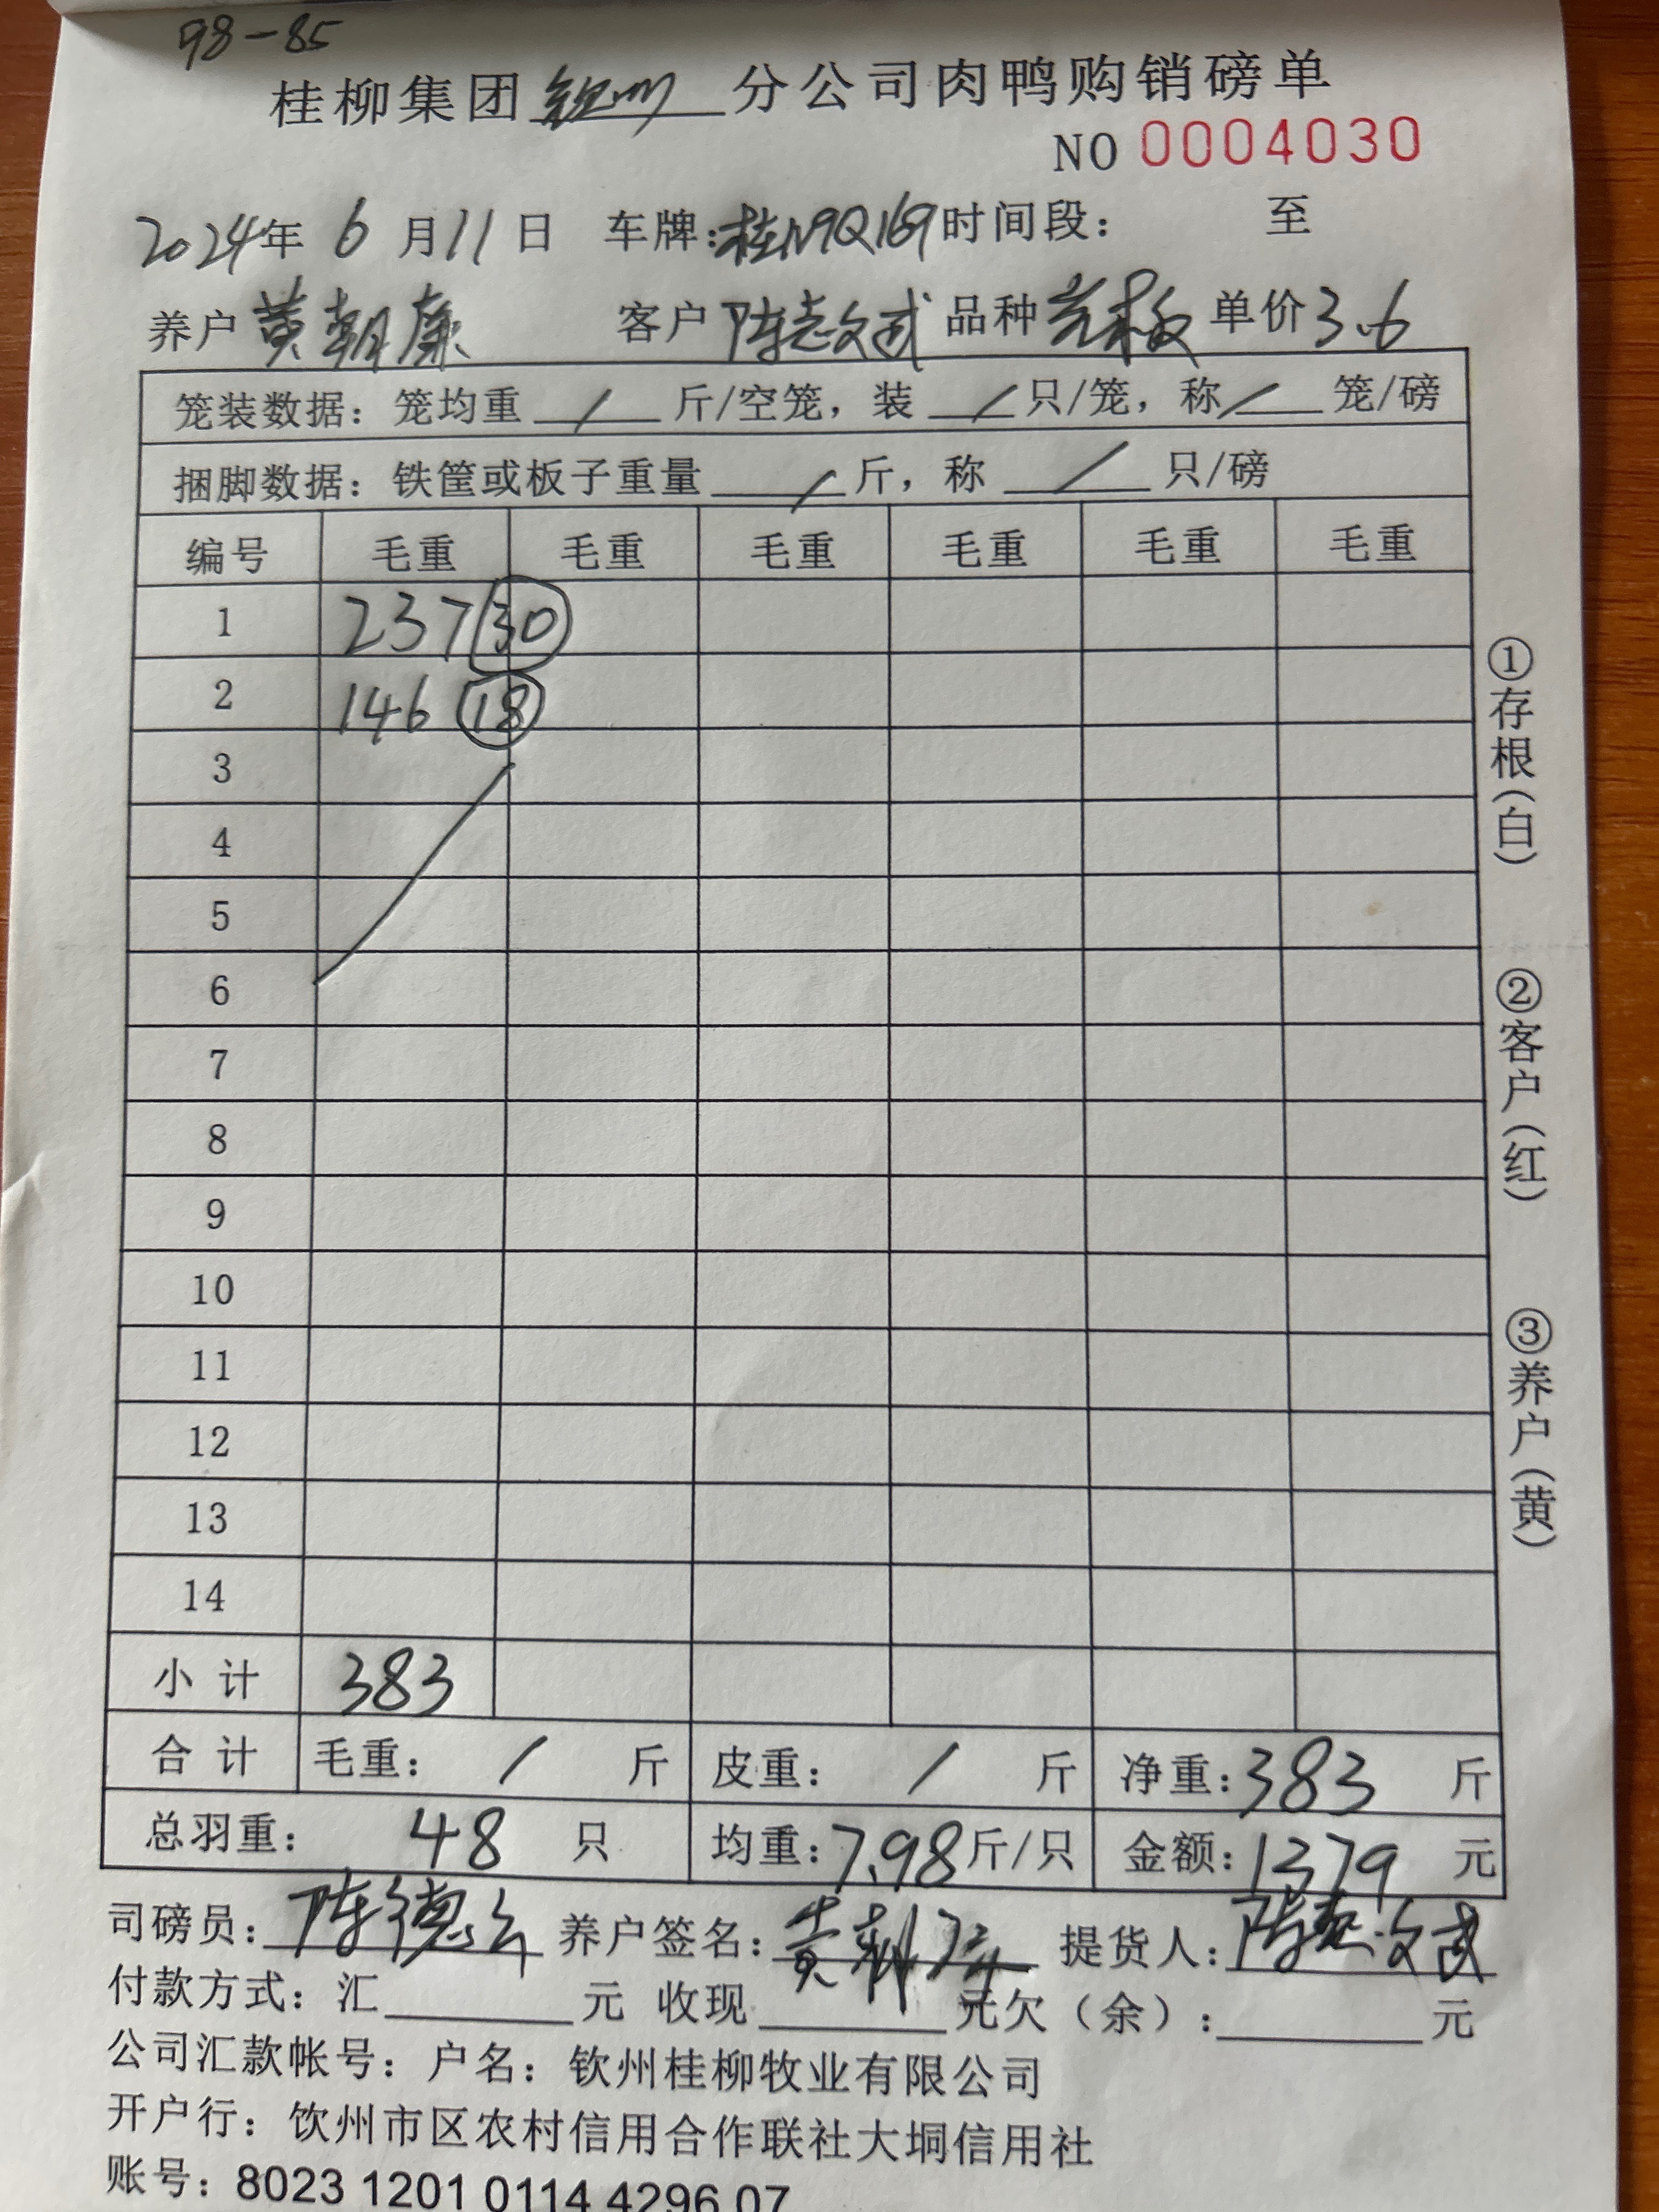 98-85
桂柳集团钦州分公司肉鸭购销磅单
NO 0004030
2024年 6 月 11 日 车牌:桂N9Q169 时间段: 至
养户 黄朝廉 客户 陈志文武 品种 单价 3.6
笼装数据:笼均重 / 斤/空笼,装 / 只/笼,称 / 笼/磅
捆脚数据:铁筐或板子重量 / 斤,称 / 只/磅
编号 毛重 毛重 毛重 毛重 毛重 毛重
1 237 30
2 146 18
3
4
5
6
7
8
9
10
11
12
13
14
小计 383
合计 毛重: / 斤 皮重: / 斤 净重:383 斤
总羽重: 48 只 均重:7.98斤/只 金额:1379 元
司磅员:陈德 养户签名:黄朝 提货人:陈志文武
付款方式:汇 元 收现 元欠(余): 元
公司汇款帐号:户名:钦州桂柳牧业有限公司
开户行:饮州市区农村信用合作联社大垌信用社
账号:8023 1201 0114 4296 07
①存根(白)
②客户(红)
③养户(黄)